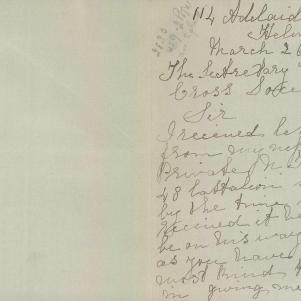 114 Adelaid
Helm
March 26
The Secretary
Cross Soci
Sir
I received le
from my nep
Private
48 battalion
by the time
received it
be on his way
as you have
most kind
in giving me